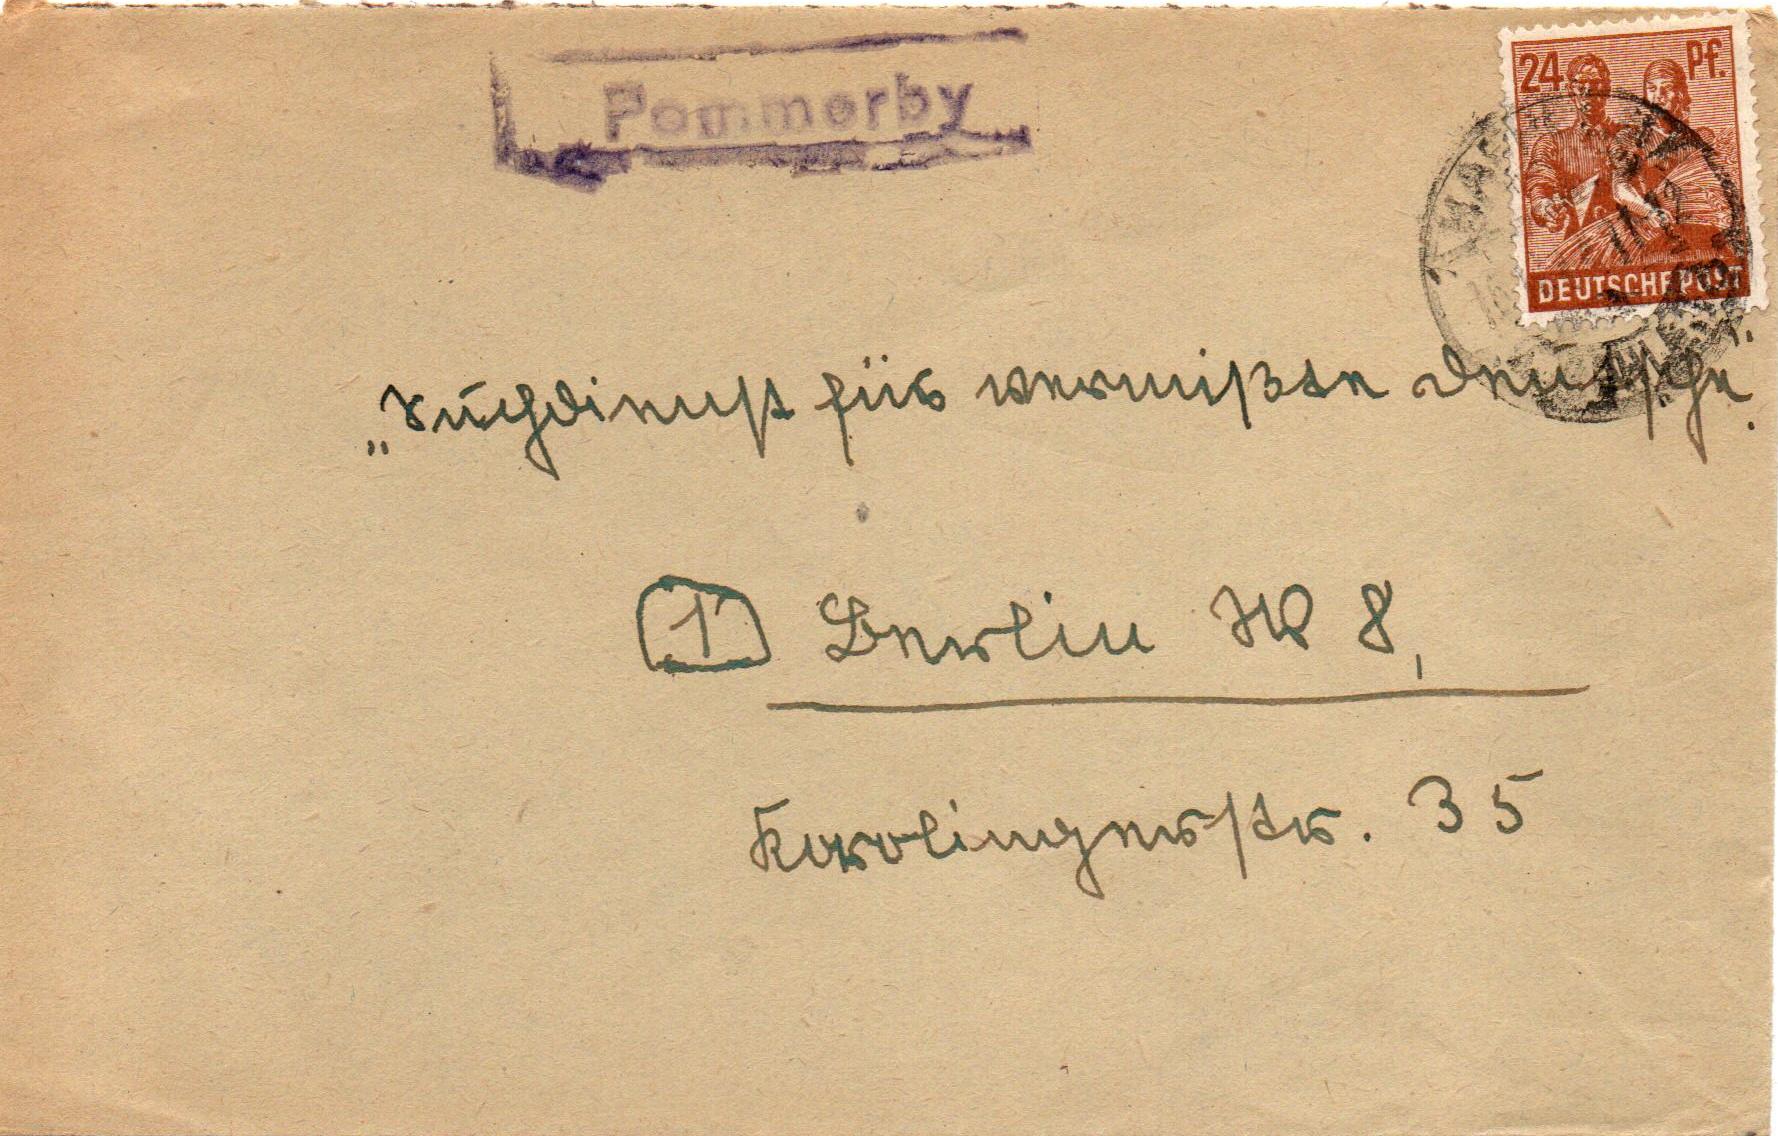 Pommerby
24 Pf.
DEUTSCHE POST
„Suchdienst für vermißte Deutsche."
1 Berlin W 8,
Karolingerstr. 35